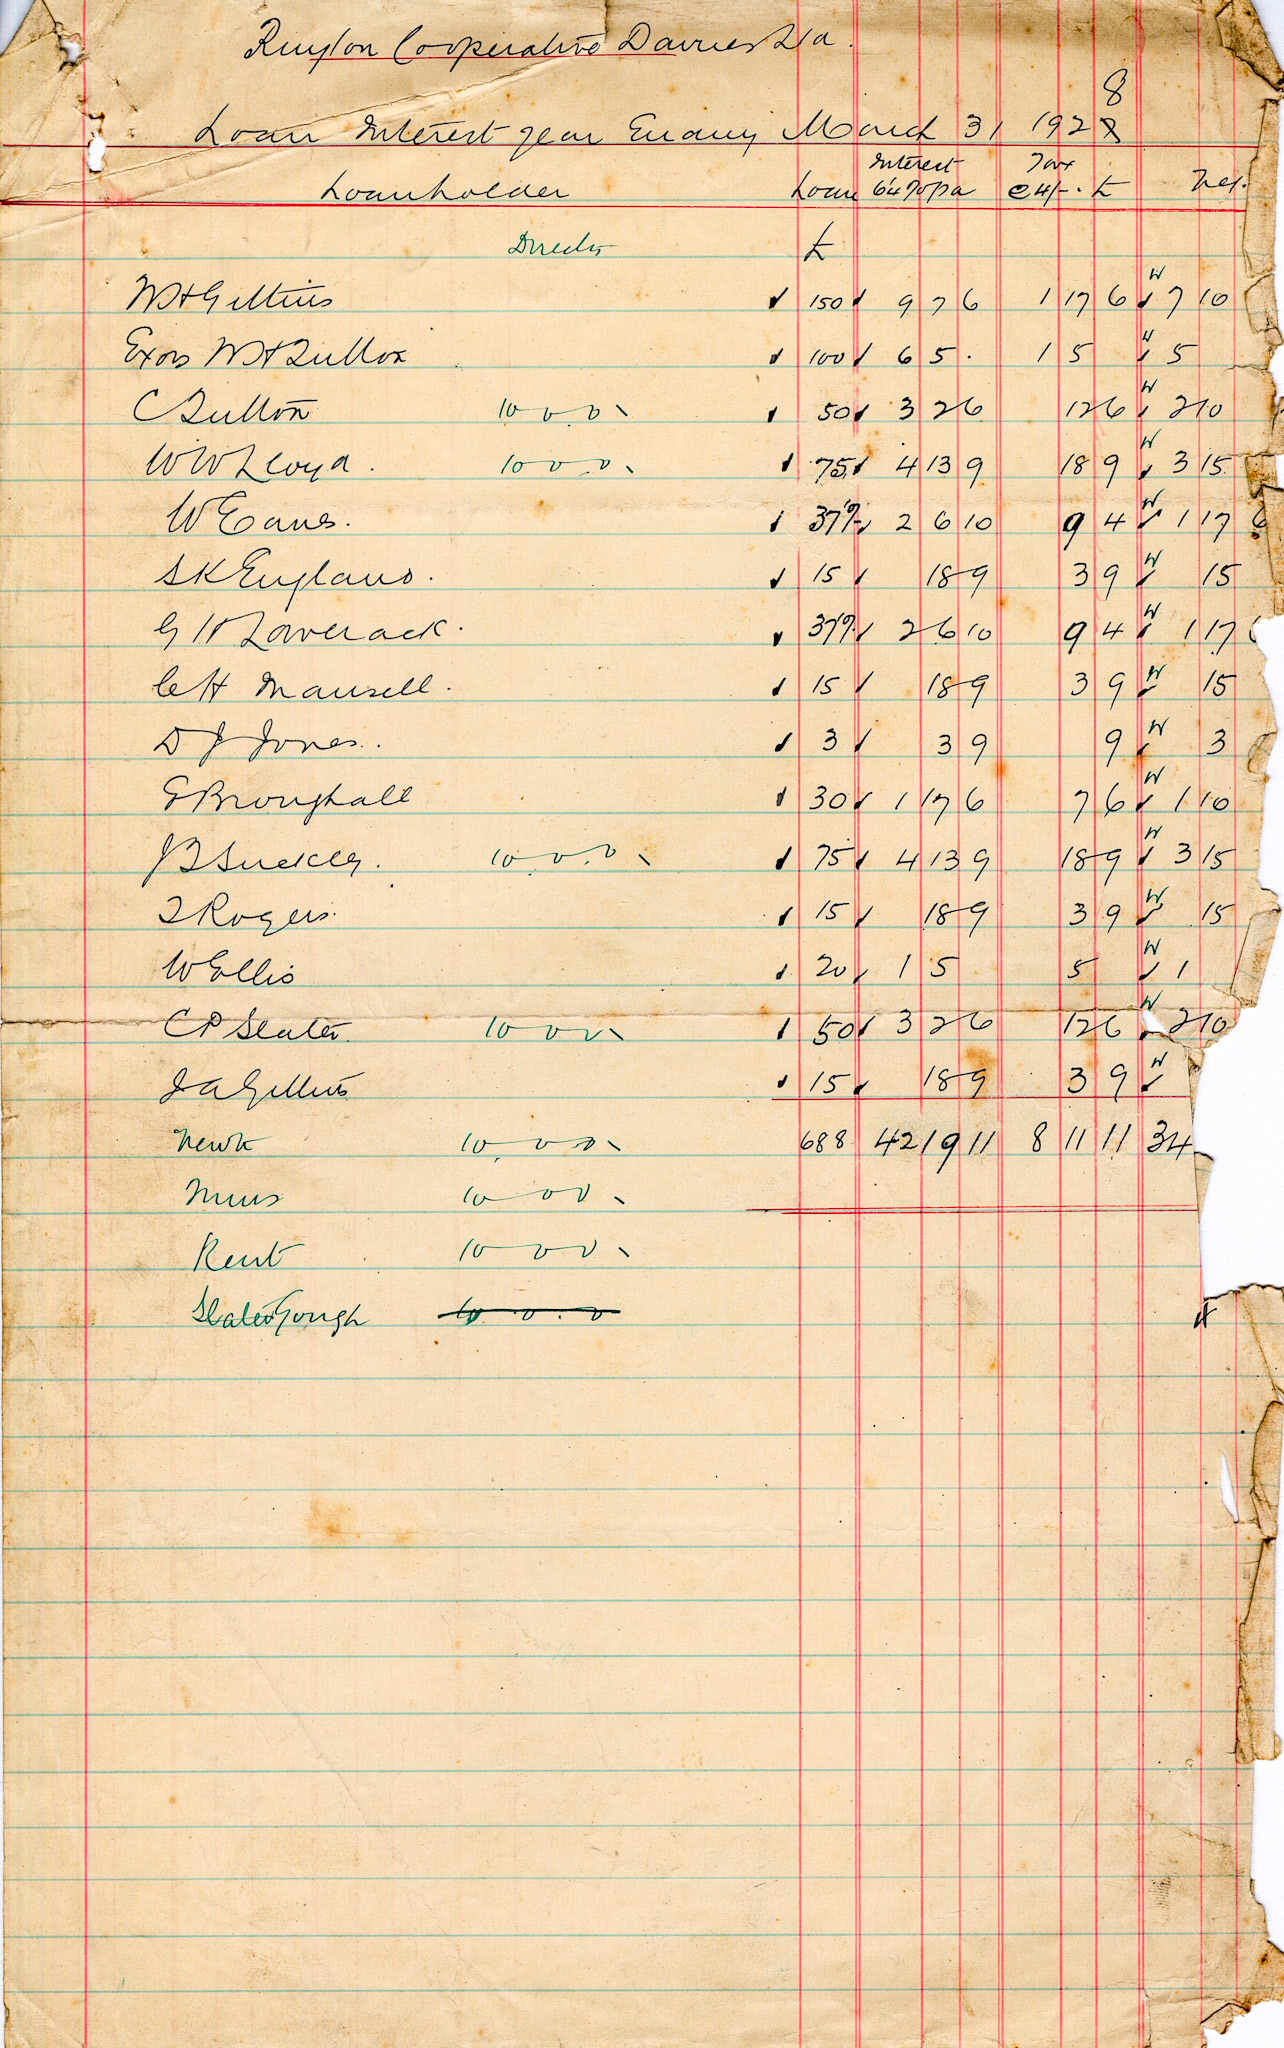 Ruyton Cooperative Dairies Ltd.
Loan Interest year Ending March 31 1928
Loanholder Loan Interest 6¼% pa Tax @ 4/- £ Net.
Directors £
WH Gittins ✓ 150 ✓ 9 7 6 1 17 6 W ✓ 7 10
Exors WH Sutton ✓ 100 ✓ 6 5 . 1 5 W ✓ 5
C Sutton 10 0 0 ✓ 50 ✓ 3 2 6 12 6 W ✓ 2 10
WW Lloyd. 10 0 0 ✓ 75 ✓ 4 13 9 18 9 W ✓ 3 15
W Evans. ✓ 37½ ✓ 2 6 10 9 4 W ✓ 1 17 6
SK England. ✓ 15 ✓ 18 9 3 9 W ✓ 15
G H Laverack. ✓ 37½ ✓ 2 6 10 9 4 W ✓ 1 17
C H Mansell. ✓ 15 ✓ 18 9 3 9 W ✓ 15
D J Jones. ✓ 3 ✓ 3 9 9 W ✓ 3
E Broughall ✓ 30 ✓ 1 17 6 7 6 W ✓ 1 10
JB Suckley. 10 0 0 ✓ 75 ✓ 4 13 9 18 9 W ✓ 3 15
T Rogers. ✓ 15 ✓ 18 9 3 9 W ✓ 15
W Ellis ✓ 20 ✓ 1 5 5 W ✓ 1
CP Slater. 10 0 0 ✓ 50 ✓ 3 2 6 12 6 W ✓ 2 10
J A Gittins ✓ 15 ✓ 18 9 3 9 W ✓
10 0 0 688 42 19 11 8 11 11 34
10 0 0
Kent 10 0 0
Slater Gough 10 0 0